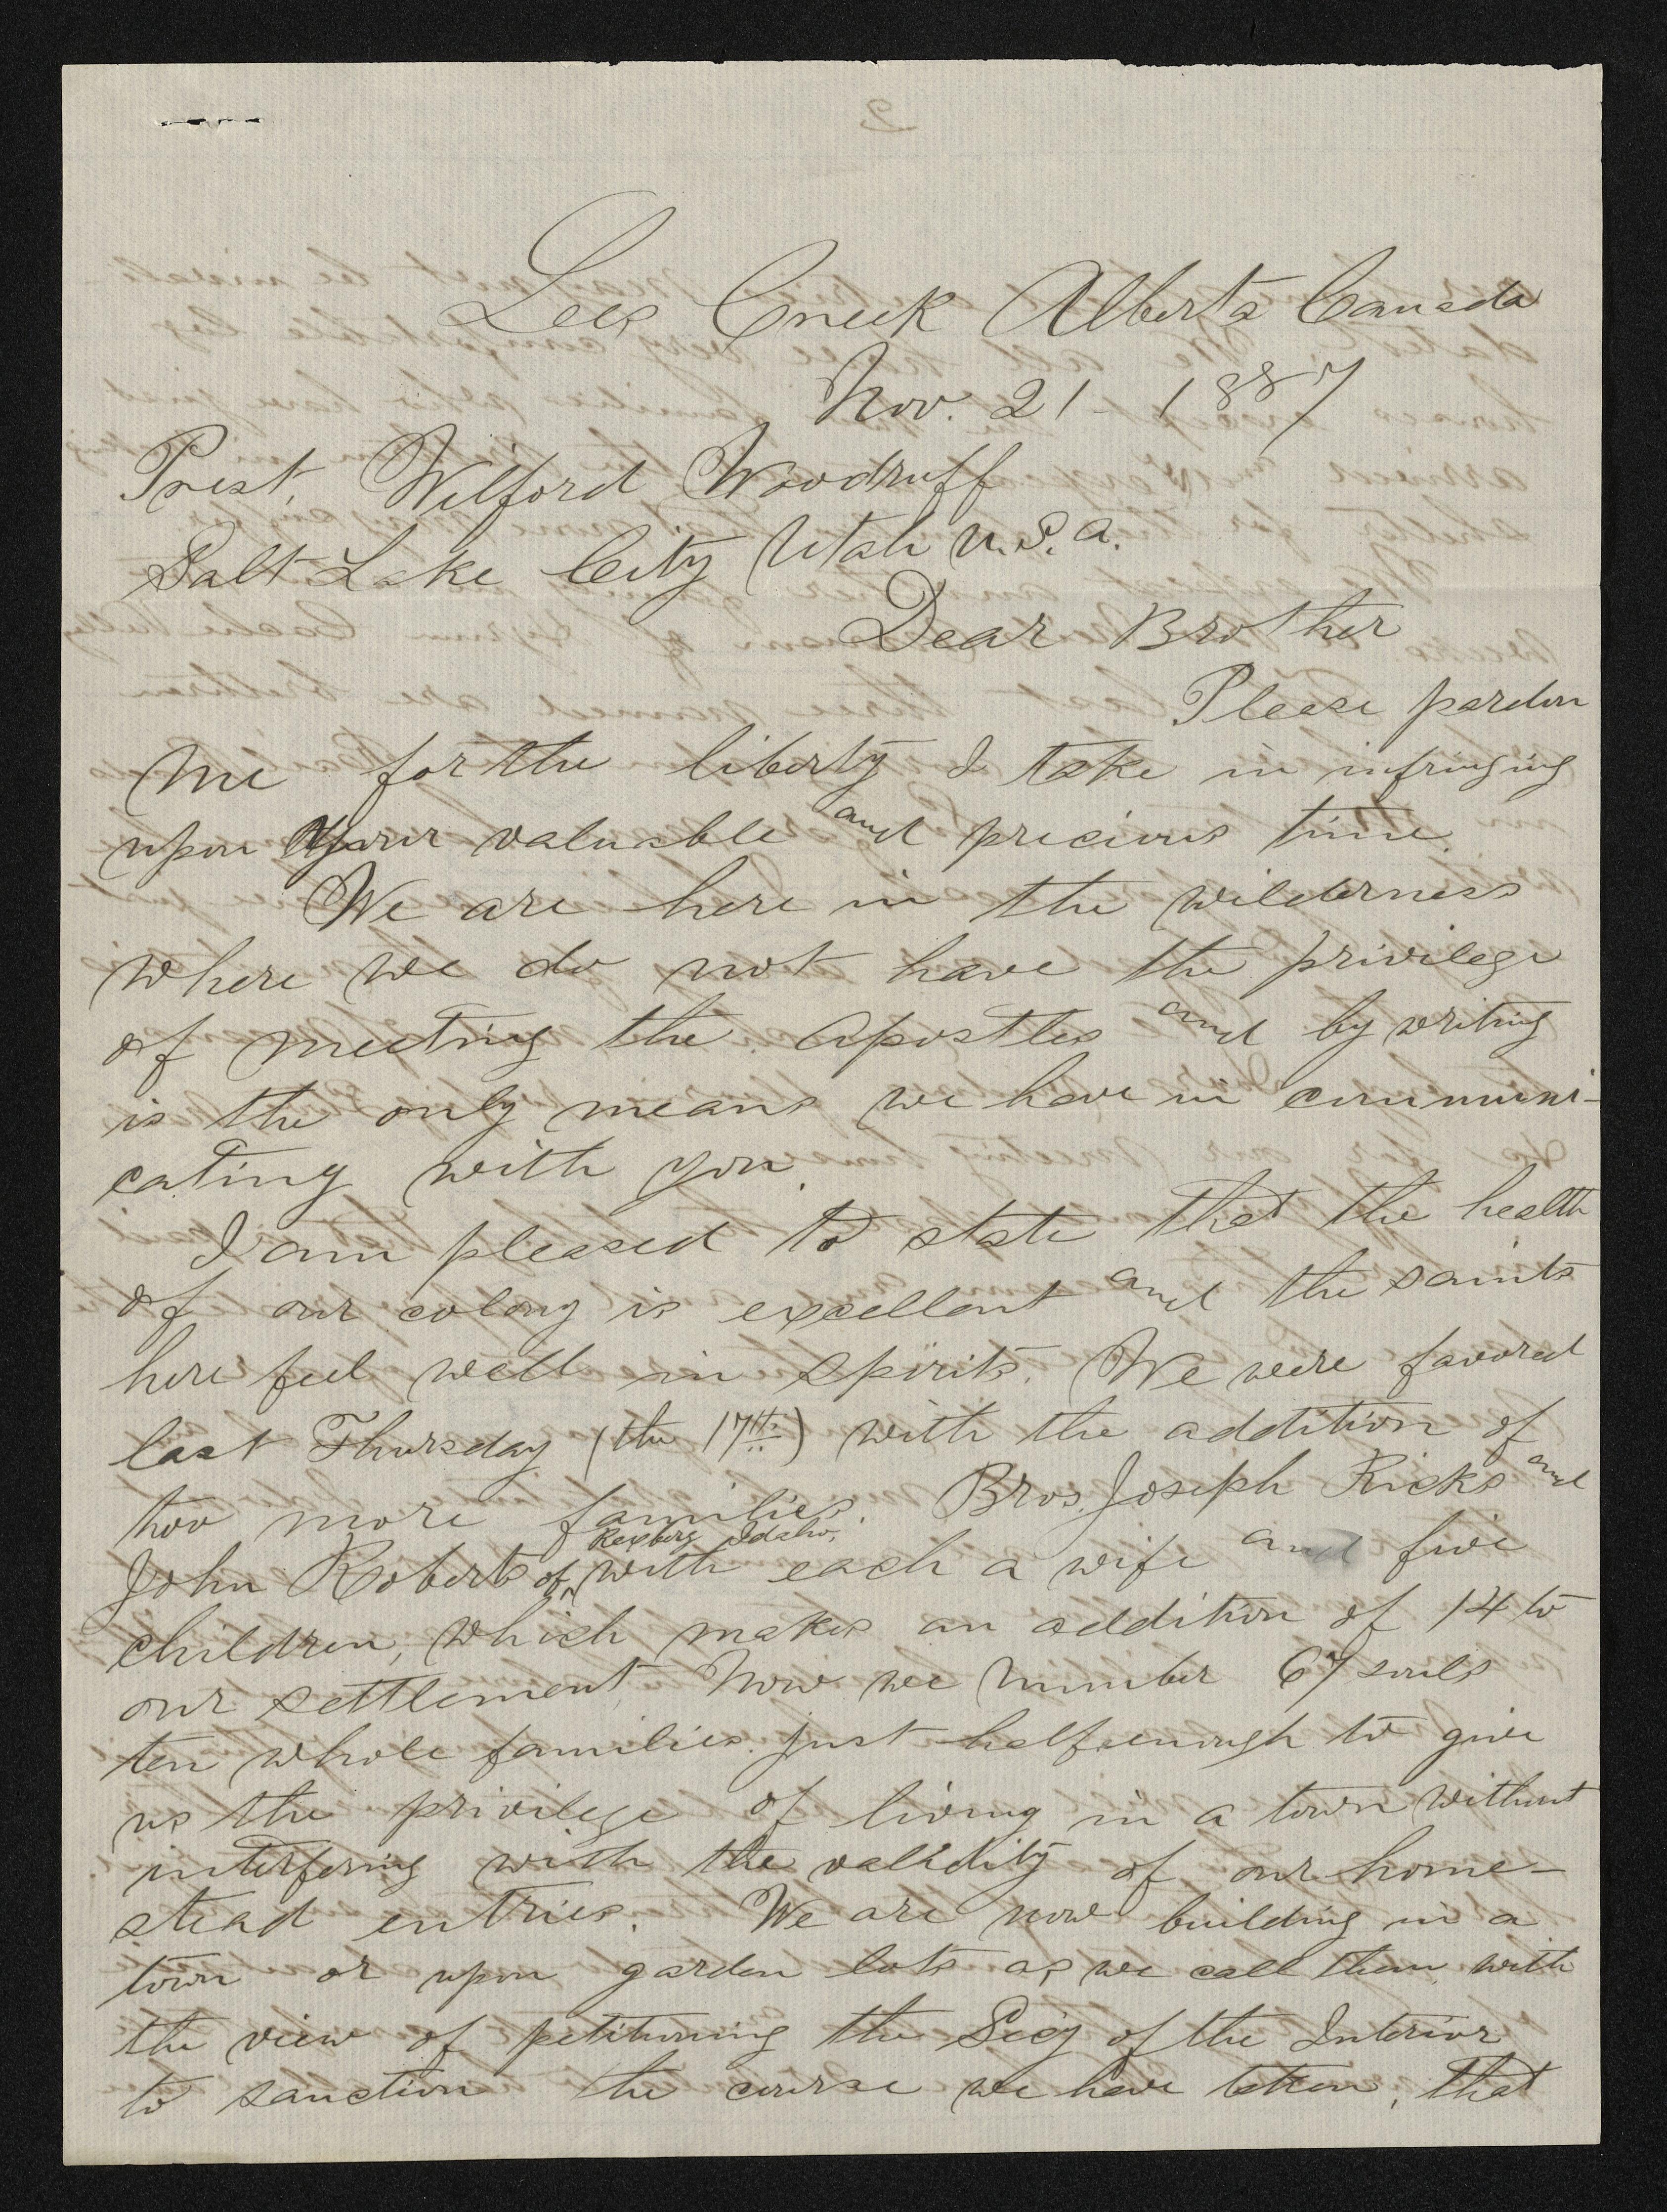 Lees Creek Alberta Canada
Nov. 21 - 1887
Prest. Wilford Woodruff
Salt Lake City Utah U.S.A.
Dear Brother
Please pardon
me for the liberty I take in infringing
upon your valuable and precious time.
We are here in the wilderness
where we do not have the privilege
of meeting the Apostles and by writing
is the only means we have in communi-
cating with you.
I am pleased to state that the health
of our colony is excellent and the saints
here feel well in spirits. We were favored
last Thursday (the 17th) with the addition of
two more families. Bros. Joseph Ricks and
Rexburg Idaho,
John Roberts of with each a wife and five
children, which makes an addition of 14 to
our settlement. Now we number 67 souls
ten whole families. just half enough to give
us the privilege of living in a town without
interfering with the validity of our home-
stead entries. We are now building in a
town or upon garden lots as we call them with
the view of petitioning the Secy of the Interior
to sanction the course we have taken, that